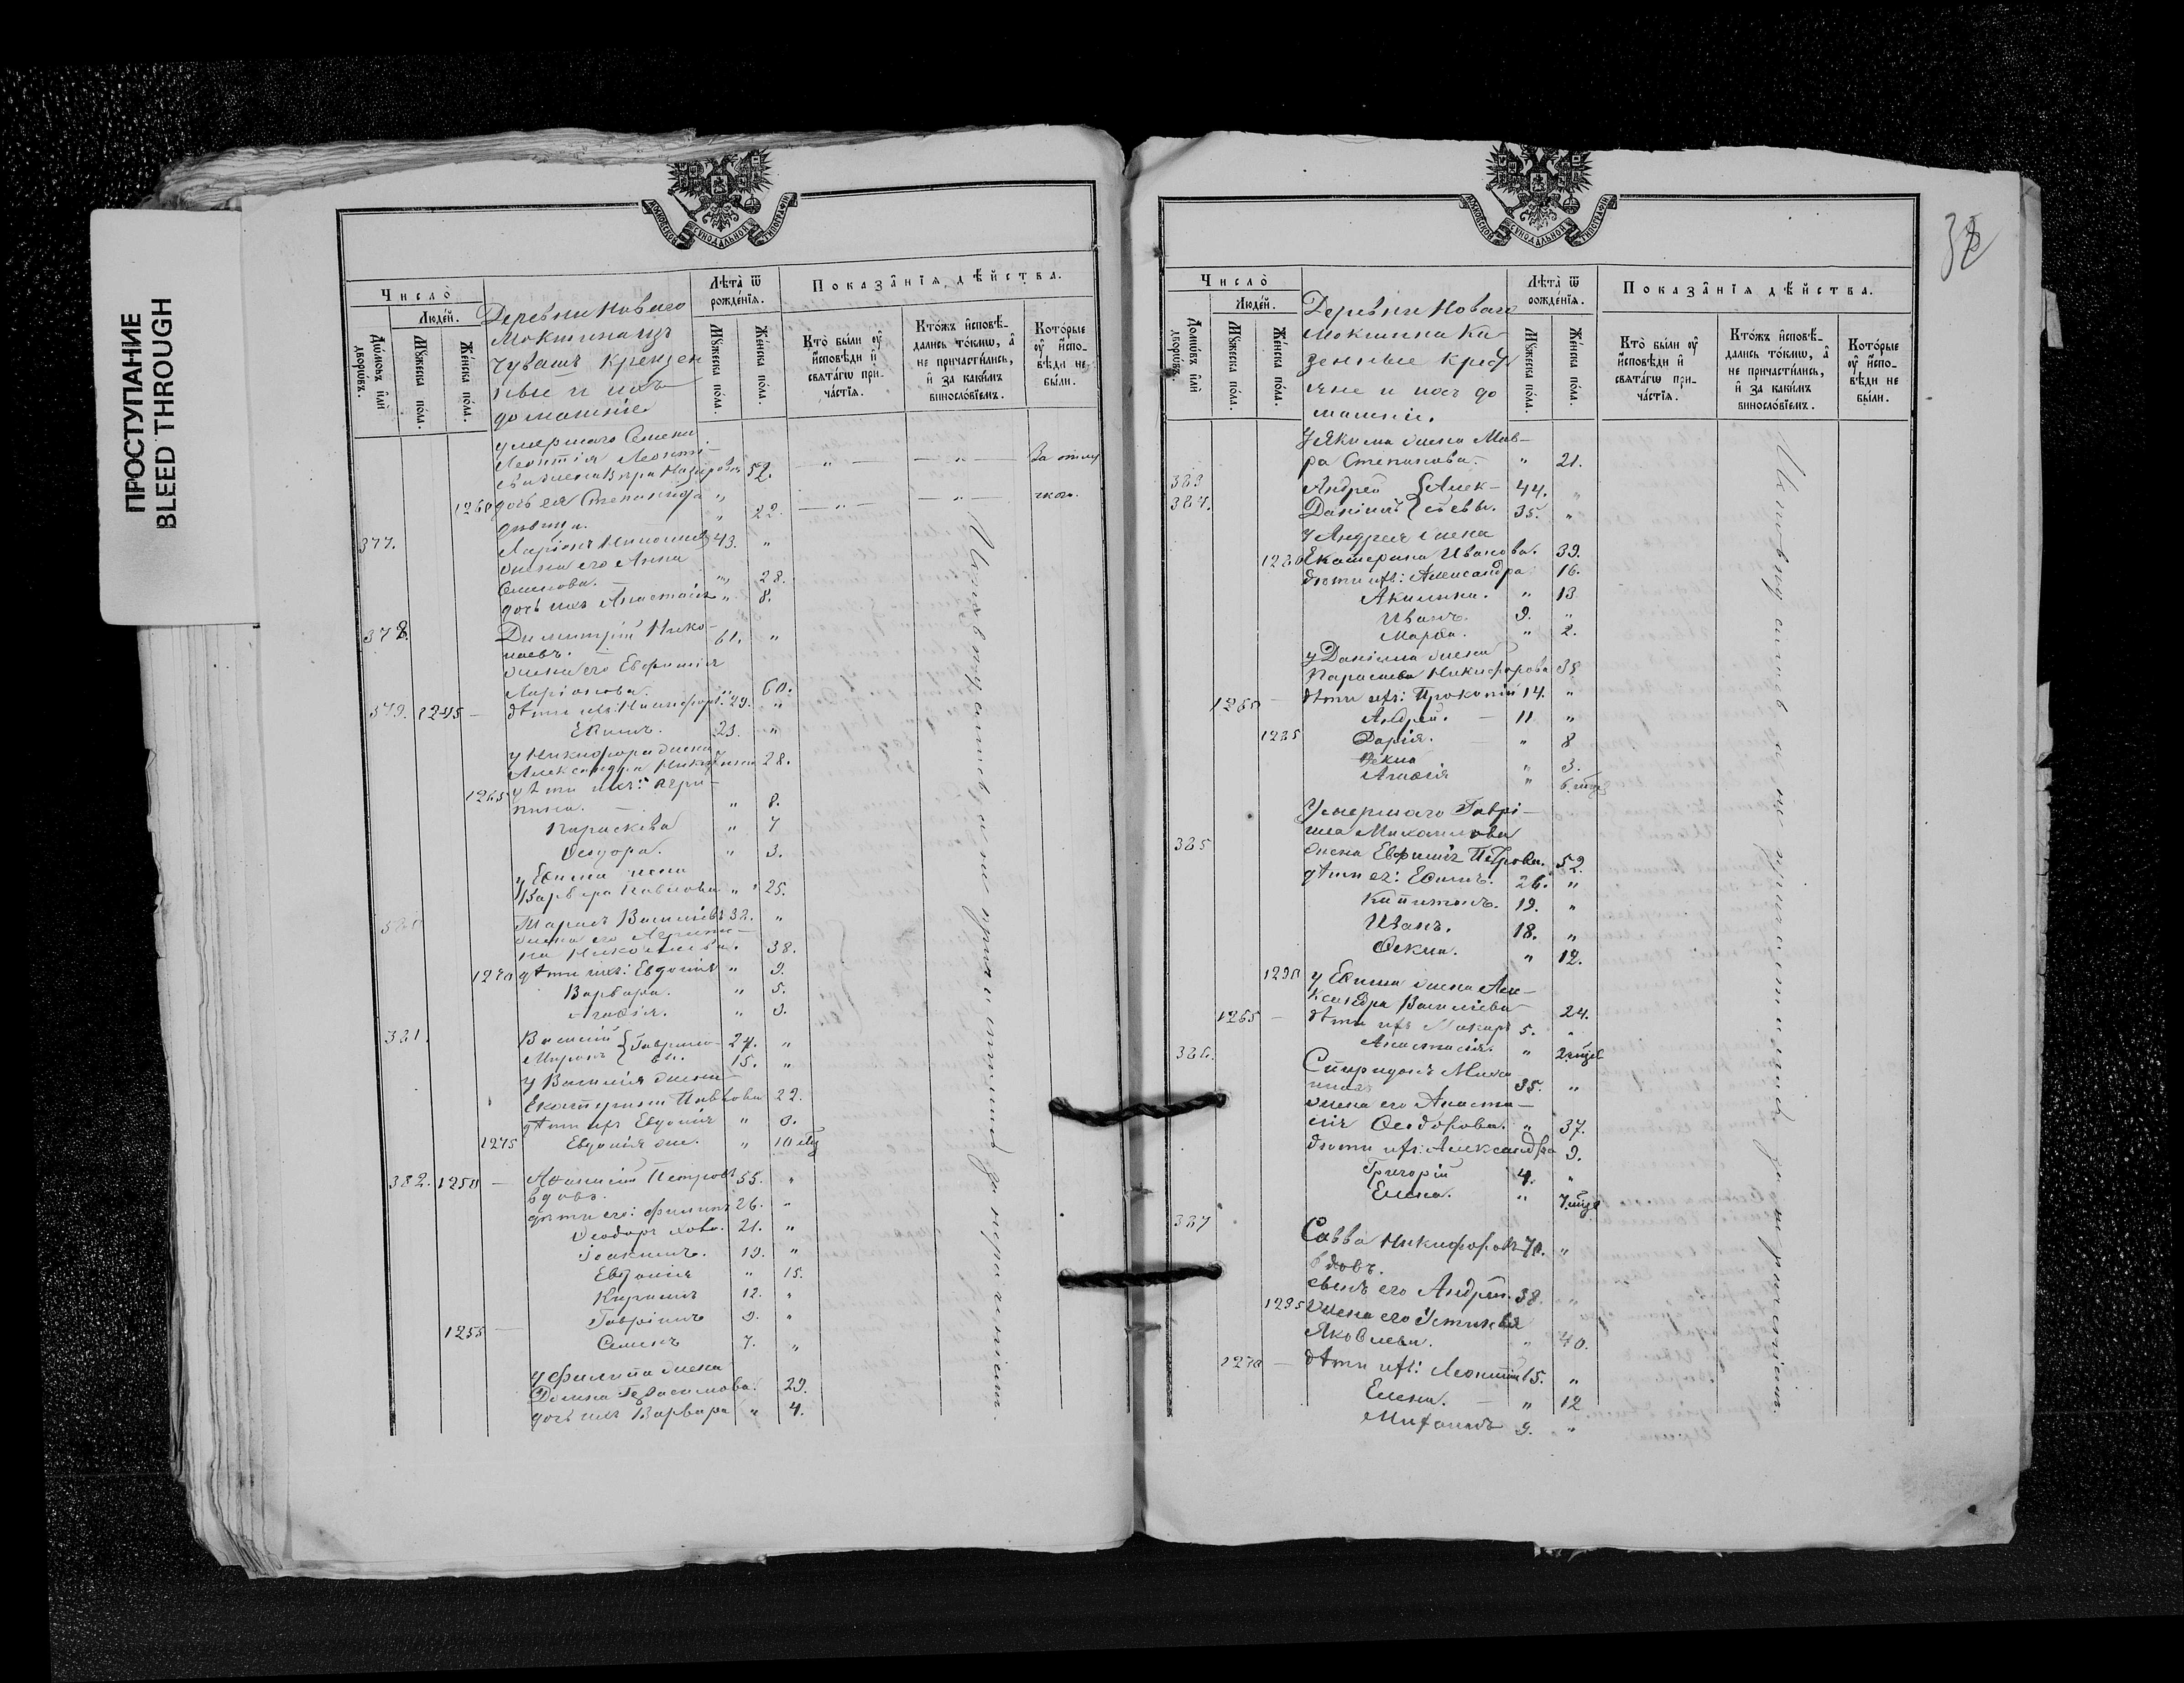 ПРОСТУПАНИЕ
BLEED THROUGH
МОСКОВСКОЙ СѴНОДАЛЬНОЙ ТИПОГРАФІИ
Число̀
Людей.
Домѡвъ или дворѡвъ.
Мужеска пола.
Женска пола.
Деревни Новаго
Мокшина изъ
Чувашъ крещен
ные и ихъ
домашніе
Лѣта ѿ рожденїѧ.
Мужеска пола.
Женска пола.
Показанїѧ дѣйства.
Кто были оу исповѣди и свѧтагѡ причастїѧ.
Ктожъ исповѣдались токмѡ, а не причастились, и за какимъ винословїемъ.
Которые оу исповѣди не были.
умершаго Семена
Леонтія Леонть-
ева жена Вѣра Назарова 52. — „ — — „ — За отлу
1260 дочь ея Степанида „ 22. — „ — — „ — чкою.
дѣвица.
377. Ларіонъ 43. „
жена его Анна
Семенова. „ 28.
дочь ихъ Анастасія „ 8.
378. Димитрій Нико-
лаевъ. 61. „
жена его Евфимія
Ларіонова. 60.
379. 1245 — дѣти ихъ: Никифоръ 29. „
Ефимъ. 23. „
у Никифора жена
Александра 28.
1265 дѣти ихъ: Агри-
пина. „ 8.
Параскева „ 7
Ѳеодора. „ 3.
у Ефима жена
Варвара Павлова „ 25.
380 Василіевъ 32. „
жена его Агрипи-
на Николаева. 38.
1270 дѣти ихъ: Евдокія „ 9.
Варвара. „ 5.
Агаѳія. „ 3.
381. Василій } Гаврило- 24. „
Миронъ } вы. 15. „
у Василія жена
Екатерина Павлова 22.
дѣти ихъ Евдокія „ 3.
1275 Евдокія же. „ 10 мѣц
382. 1250 — Аѳанасій Петровъ 55. „
вдовъ.
дѣти его: Филипъ 26. „
Ѳеодоръ холо. 21. „
Іоакимъ. 19. „
Евдокія „ 15.
Кирилъ 12. „
Гавріилъ 9. „
1255 — Семенъ 7. „
у Филипа жена
Домна Герасимова. 29.
дочь ихъ Варвара „ 4.
Исповѣдшись и не причастились за
38
МОСКОВСКОЙ СѴНОДАЛЬНОЙ ТИПОГРАФІИ
Число̀
Людей.
Домѡвъ или дворѡвъ.
Мужеска пола.
Женска пола.
Деревни Новаго
Мокшина Ка
зенные крест
яне и ихъ до
машніе.
Лѣта ѿ рожденїѧ.
Мужеска пола.
Женска пола.
Показанїѧ дѣйства.
Кто были оу исповѣди и свѧтагѡ причастїѧ.
Ктожъ исповѣдались токмѡ, а не причастились, и за какимъ винословїемъ.
Которые оу исповѣди не были.
У Якима жена Мав-
ра Степанова. „ 21.
383 Андрей } Алек- 44. „
384. Даніилъ } сѣевы. 35. „
У Андрея жена
1280 Екатерина Иванова. 39.
дѣти ихъ: Александра 16.
Акилина. „ 13
Иванъ. 9. „
Марѳа. „ 2.
у Даніила жена
Параскева Никифорова 35
1260 — дѣти ихъ: Прокопій 14. „
Андрей. — 11 „
1285 Дарія. — „ 8
Ѳекла „ 3.
Агаѳія „ 6 мѣц
Умершаго Гаврі-
ила Михаилова
385 жена Евфимія Петрова. 52.
дѣти ея: Ефимъ. 26. „
Капитонъ. 19. „
Иванъ. 18. „
Ѳекла. „ 12.
1290 у Ефима жена Але-
ксандра Василіева 24.
1265 — дѣти ихъ Макаръ 5. „
Анастасія. „ 2 мѣц
386. Спиридонъ Миха
иловъ 35. „
жена его Анаста-
сія Ѳеодорова. „ 37.
дѣти ихъ: Александра 9.
Григорій 4. „
Елена. „ 7 мѣц
387 Савва Никифоровъ 70. „
вдовъ.
сынъ его Андрей 38. „
1295 жена его Устинья
Яковлева. „ 40.
1270 — дѣти ихъ: Леонтій 15. „
Елена. — „ 12
Михаилъ 9. „